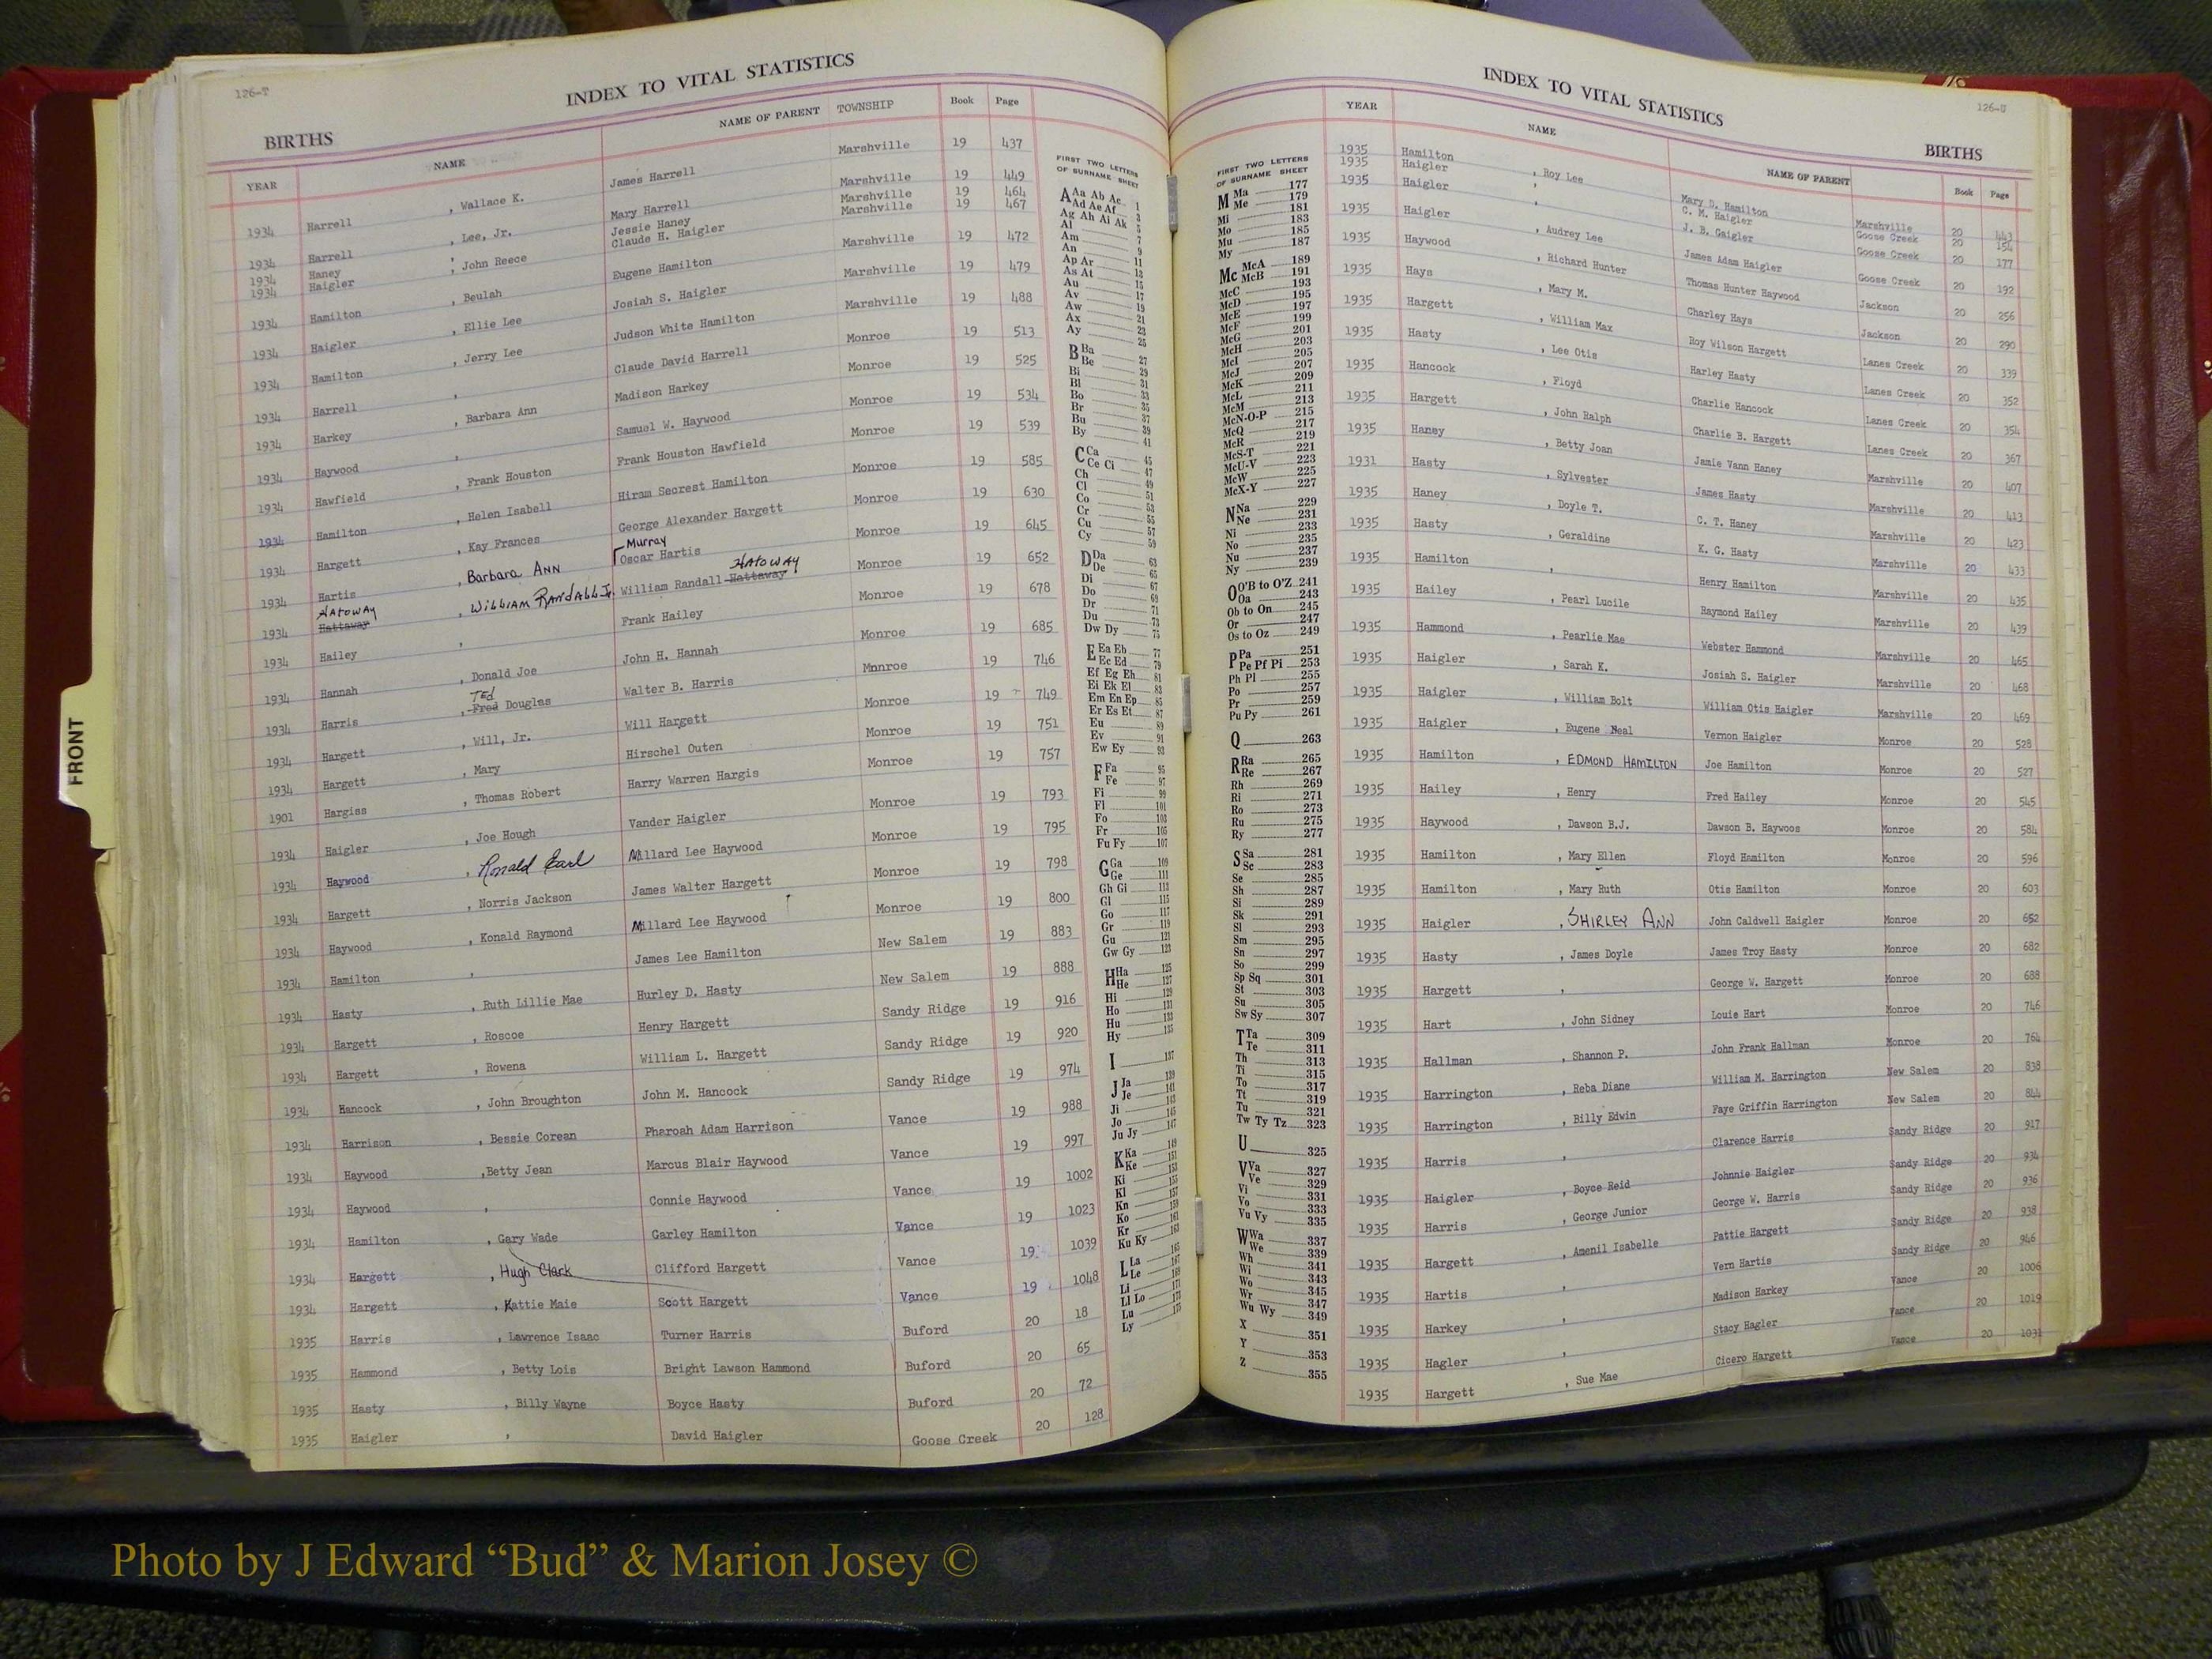 126-T
INDEX TO VITAL STATISTICS
BIRTHS
YEAR NAME NAME OF PARENT TOWNSHIP Book Page
1934 Harrell , Wallace K. James Harrell Marshville 19 437
1934 Harrell , Lee, Jr. Mary Harrell Marshville 19 449
1934 Haney , Jessie Haney Marshville 19 464
1934 Haigler , John Reece Claude H. Haigler Marshville 19 467
1934 Hamilton , Beulah Eugene Hamilton Marshville 19 472
1934 Haigler , Ellie Lee Josiah S. Haigler Marshville 19 479
1934 Hamilton , Jerry Lee Judson White Hamilton Marshville 19 488
1934 Harrell , Claude David Harrell Monroe 19 513
1934 Harkey , Barbara Ann Madison Harkey Monroe 19 525
1934 Haywood , Samuel W. Haywood Monroe 19 534
1934 Hawfield , Frank Houston Frank Houston Hawfield Monroe 19 539
1934 Hamilton , Helen Isabell Hiram Secrest Hamilton Monroe 19 585
1934 Hargett , Kay Frances George Alexander Hargett Monroe 19 630
Murray
1934 Hartis , Barbara Ann Oscar Hartis Monroe 19 645
HATOWAY HATOWAY
1934 Hattaway , William Randall Jr. William Randall Hattaway Monroe 19 652
1934 Hailey , Frank Hailey Monroe 19 678
1934 Hannah , Donald Joe John H. Hannah Monroe 19 685
TEd
1934 Harris , Fred Douglas Walter B. Harris Mnnroe 19 746
1934 Hargett , Will, Jr. Will Hargett Monroe 19 749
1934 Hargett , Mary Hirschel Outen Monroe 19 751
1901 Hargiss , Thomas Robert Harry Warren Hargis Monroe 19 757
1934 Haigler , Joe Hough Vander Haigler Monroe 19 793
1934 Haywood , Ronald Earl Millard Lee Haywood Monroe 19 795
1934 Hargett , Norris Jackson James Walter Hargett Monroe 19 798
1934 Haywood , Konald Raymond Millard Lee Haywood Monroe 19 800
1934 Hamilton , James Lee Hamilton New Salem 19 883
1934 Hasty , Ruth Lillie Mae Hurley D. Hasty New Salem 19 888
1934 Hargett , Roscoe Henry Hargett Sandy Ridge 19 916
1934 Hargett , Rowena William L. Hargett Sandy Ridge 19 920
1934 Hancock , John Broughton John M. Hancock Sandy Ridge 19 974
1934 Harrison , Bessie Corean Pharoah Adam Harrison Vance 19 988
1934 Haywood ,Betty Jean Marcus Blair Haywood Vance 19 997
1934 Haywood , Connie Haywood Vance 19 1002
1934 Hamilton , Gary Wade Garley Hamilton Vance 19 1023
1934 Hargett , Hugh Clark Clifford Hargett Vance 19 1039
1934 Hargett , Kattie Maie Scott Hargett Vance 19 1048
1935 Harris , Lawrence Isaac Turner Harris Buford 20 18
1935 Hammond , Betty Lois Bright Lawson Hammond Buford 20 65
1935 Hasty , Billy Wayne Boyce Hasty Buford 20 72
1935 Haigler , David Haigler Goose Creek 20 128
FIRST TWO LETTERS
OF SURNAME SHEET
A Aa Ab Ac 1
Ad Ae Af 3
Ag Ah Ai Ak 5
Al 7
Am 9
An 11
Ap Ar 13
As At 15
Au 17
Av 19
Aw 21
Ax 23
Ay 25
B Ba 27
Be 29
Bi 31
Bl 33
Bo 35
Br 37
Bu 39
By 41
C Ca 45
Ce Ci 47
Ch 49
Cl 51
Co 53
Cr 55
Cu 57
Cy 59
D Da 63
De 65
Di 67
Do 69
Dr 71
Du 73
Dw Dy 75
E Ea Eb 77
Ec Ed 79
Ef Eg Eh 81
Ei Ek El 83
Em En Ep 85
Er Es Et 87
Eu 89
Ev 91
Ew Ey 93
F Fa 95
Fe 97
Fi 99
Fl 101
Fo 103
Fr 105
Fu Fy 107
G Ga 109
Ge 111
Gh Gi 113
Gl 115
Go 117
Gr 119
Gu 121
Gw Gy 123
H Ha 125
He 127
Hi 129
Ho 131
Hu 133
Hy 135
I 137
J Ja 139
Je 141
Ji 143
Jo 145
Ju Jy 147
K Ka 149
Ke 151
Ki 153
Kl 155
Kn 157
Ko 159
Kr 161
Ku Ky 163
L La 165
Le 167
Li 169
Ll Lo 171
Lu 173
Ly 175
126-U
INDEX TO VITAL STATISTICS
BIRTHS
FIRST TWO LETTERS
OF SURNAME SHEET
M Ma 177
Me 179
Mi 181
Mo 183
Mu 185
My 187
Mc McA 189
McB 191
McC 193
McD 195
McE 197
McF 199
McG 201
McH 203
McI 205
McJ 207
McK 209
McL 211
McM 213
McN-O-P 215
McQ 217
McR 219
McS-T 221
McU-V 223
McW 225
McX-Y 227
N Na 229
Ne 231
Ni 233
No 235
Nu 237
Ny 239
O O'B to O'Z 241
Oa 243
Ob to On 245
Or 247
Os to Oz 249
P Pa 251
Pe Pf Pi 253
Ph Pl 255
Po 257
Pr 259
Pu Py 261
Q 263
R Ra 265
Re 267
Rh 269
Ri 271
Ro 273
Ru 275
Ry 277
S Sa 281
Sc 283
Se 285
Sh 287
Si 289
Sk 291
Sl 293
Sm 295
Sn 297
So 299
Sp Sq 301
St 303
Su 305
Sw Sy 307
T Ta 309
Te 311
Th 313
Ti 315
To 317
Tt 319
Tu 321
Tw Ty Tz 323
U 325
V Va 327
Ve 329
Vi 331
Vo 333
Vu Vy 335
W Wa 337
We 339
Wh 341
Wi 343
Wo 345
Wr 347
Wu Wy 349
X 351
Y 353
Z 355
YEAR NAME NAME OF PARENT Book Page
1935 Hamilton , Roy Lee Mary D. Hamilton Marshville 20 443
1935 Haigler , C. M. Haigler Goose Creek 20 154
1935 Haigler , J. B. Gaigler Goose Creek 20 177
1935 Haigler , Audrey Lee James Adam Haigler Goose Creek 20 192
1935 Haywood , Richard Hunter Thomas Hunter Haywood Jackson 20 256
1935 Hays , Mary M. Charley Hays Jackson 20 290
1935 Hargett , William Max Roy Wilson Hargett Lanes Creek 20 339
1935 Hasty , Lee Otis Harley Hasty Lanes Creek 20 352
1935 Hancock , Floyd Charlie Hancock Lanes Creek 20 354
1935 Hargett , John Ralph Charlie B. Hargett Lanes Creek 20 367
1935 Haney , Betty Joan Jamie Vann Haney Marshville 20 407
1931 Hasty , Sylvester James Hasty Marshville 20 413
1935 Haney , Doyle T. C. T. Haney Marshville 20 423
1935 Hasty , Geraldine K. G. Hasty Marshville 20 433
1935 Hamilton , Henry Hamilton Marshville 20 435
1935 Hailey , Pearl Lucile Raymond Hailey Marshville 20 439
1935 Hammond , Pearlie Mae Webster Hammond Marshville 20 465
1935 Haigler , Sarah K. Josiah S. Haigler Marshville 20 468
1935 Haigler , William Bolt William Otis Haigler Marshville 20 469
1935 Haigler , Eugene Neal Vernon Haigler Monroe 20 528
1935 Hamilton , EDMOND HAMILTON Joe Hamilton Monroe 20 527
1935 Hailey , Henry Fred Hailey Monroe 20 545
1935 Haywood , Dawson B.J. Dawson B. Haywoos Monroe 20 584
1935 Hamilton , Mary Ellen Floyd Hamilton Monroe 20 596
1935 Hamilton , Mary Ruth Otis Hamilton Monroe 20 603
1935 Haigler , SHIRLEY ANN John Caldwell Haigler Monroe 20 652
1935 Hasty , James Doyle James Troy Hasty Monroe 20 682
1935 Hargett , George W. Hargett Monroe 20 688
1935 Hart , John Sidney Louie Hart Monroe 20 746
1935 Hallman , Shannon P. John Frank Hallman Monroe 20 764
1935 Harrington , Reba Diane William M. Harrington New Salem 20 838
1935 Harrington , Billy Edwin Faye Griffin Harrington New Salem 20 844
1935 Harris , Clarence Harris Sandy Ridge 20 917
1935 Haigler , Boyce Reid Johnnie Haigler Sandy Ridge 20 934
1935 Harris , George Junior George W. Harris Sandy Ridge 20 936
1935 Hargett , Amenil Isabelle Pattie Hargett Sandy Ridge 20 938
1935 Hartis , Vern Hartis Sandy Ridge 20 946
1935 Harkey , Madison Harkey Vance 20 1006
1935 Hagler , Stacy Hagler Vance 20 1019
1935 Hargett , Sue Mae Cicero Hargett Vance 20 1031
FRONT
Photo by J Edward “Bud” & Marion Josey ©